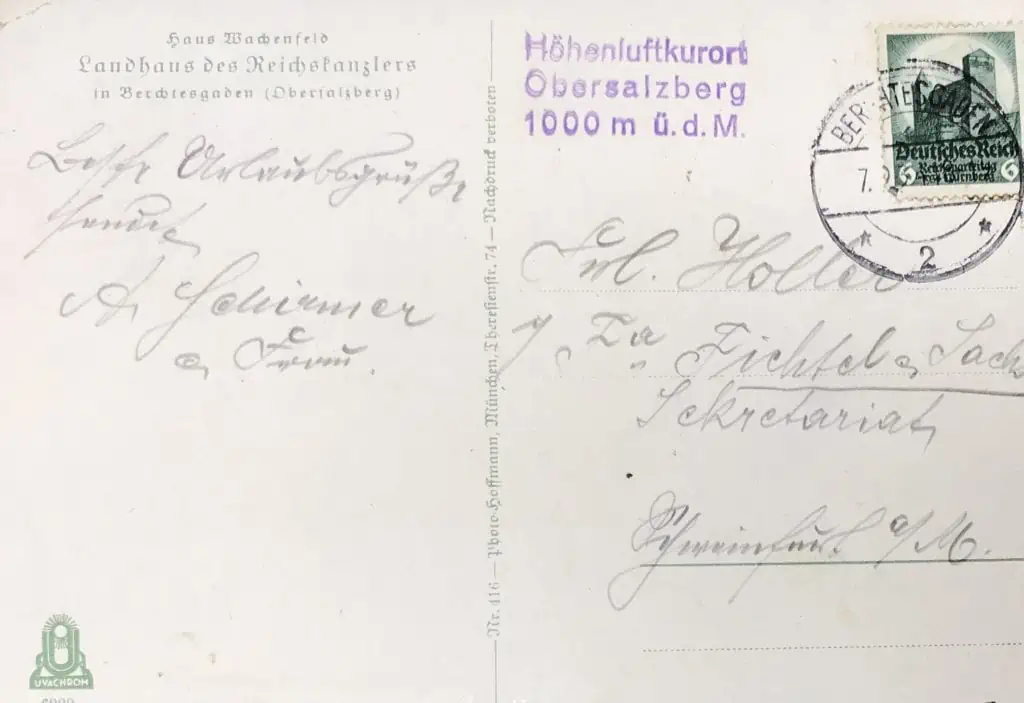 Haus Wachenfeld
Landhaus des Reichskanzlers
in Berchtesgaden (Obersalzberg)
Beste Urlaubsgrüße
sendet
A. Schirmer
u. Frau.
Nr. 416 — Photo-Hoffmann, München, Theresienstr. 74 — Nachdruck verboten
Höhenluftkurort
Obersalzberg
1000 m ü. d. M.
BERCHTESGADEN
7.
2
Deutsches Reich
Reichsparteitag
1934 Nürnberg
6 6
Frl. Holler
Fa Fichtel u. Sachs
Sekretariat
Schweinfurt a/M.
UVACHROM